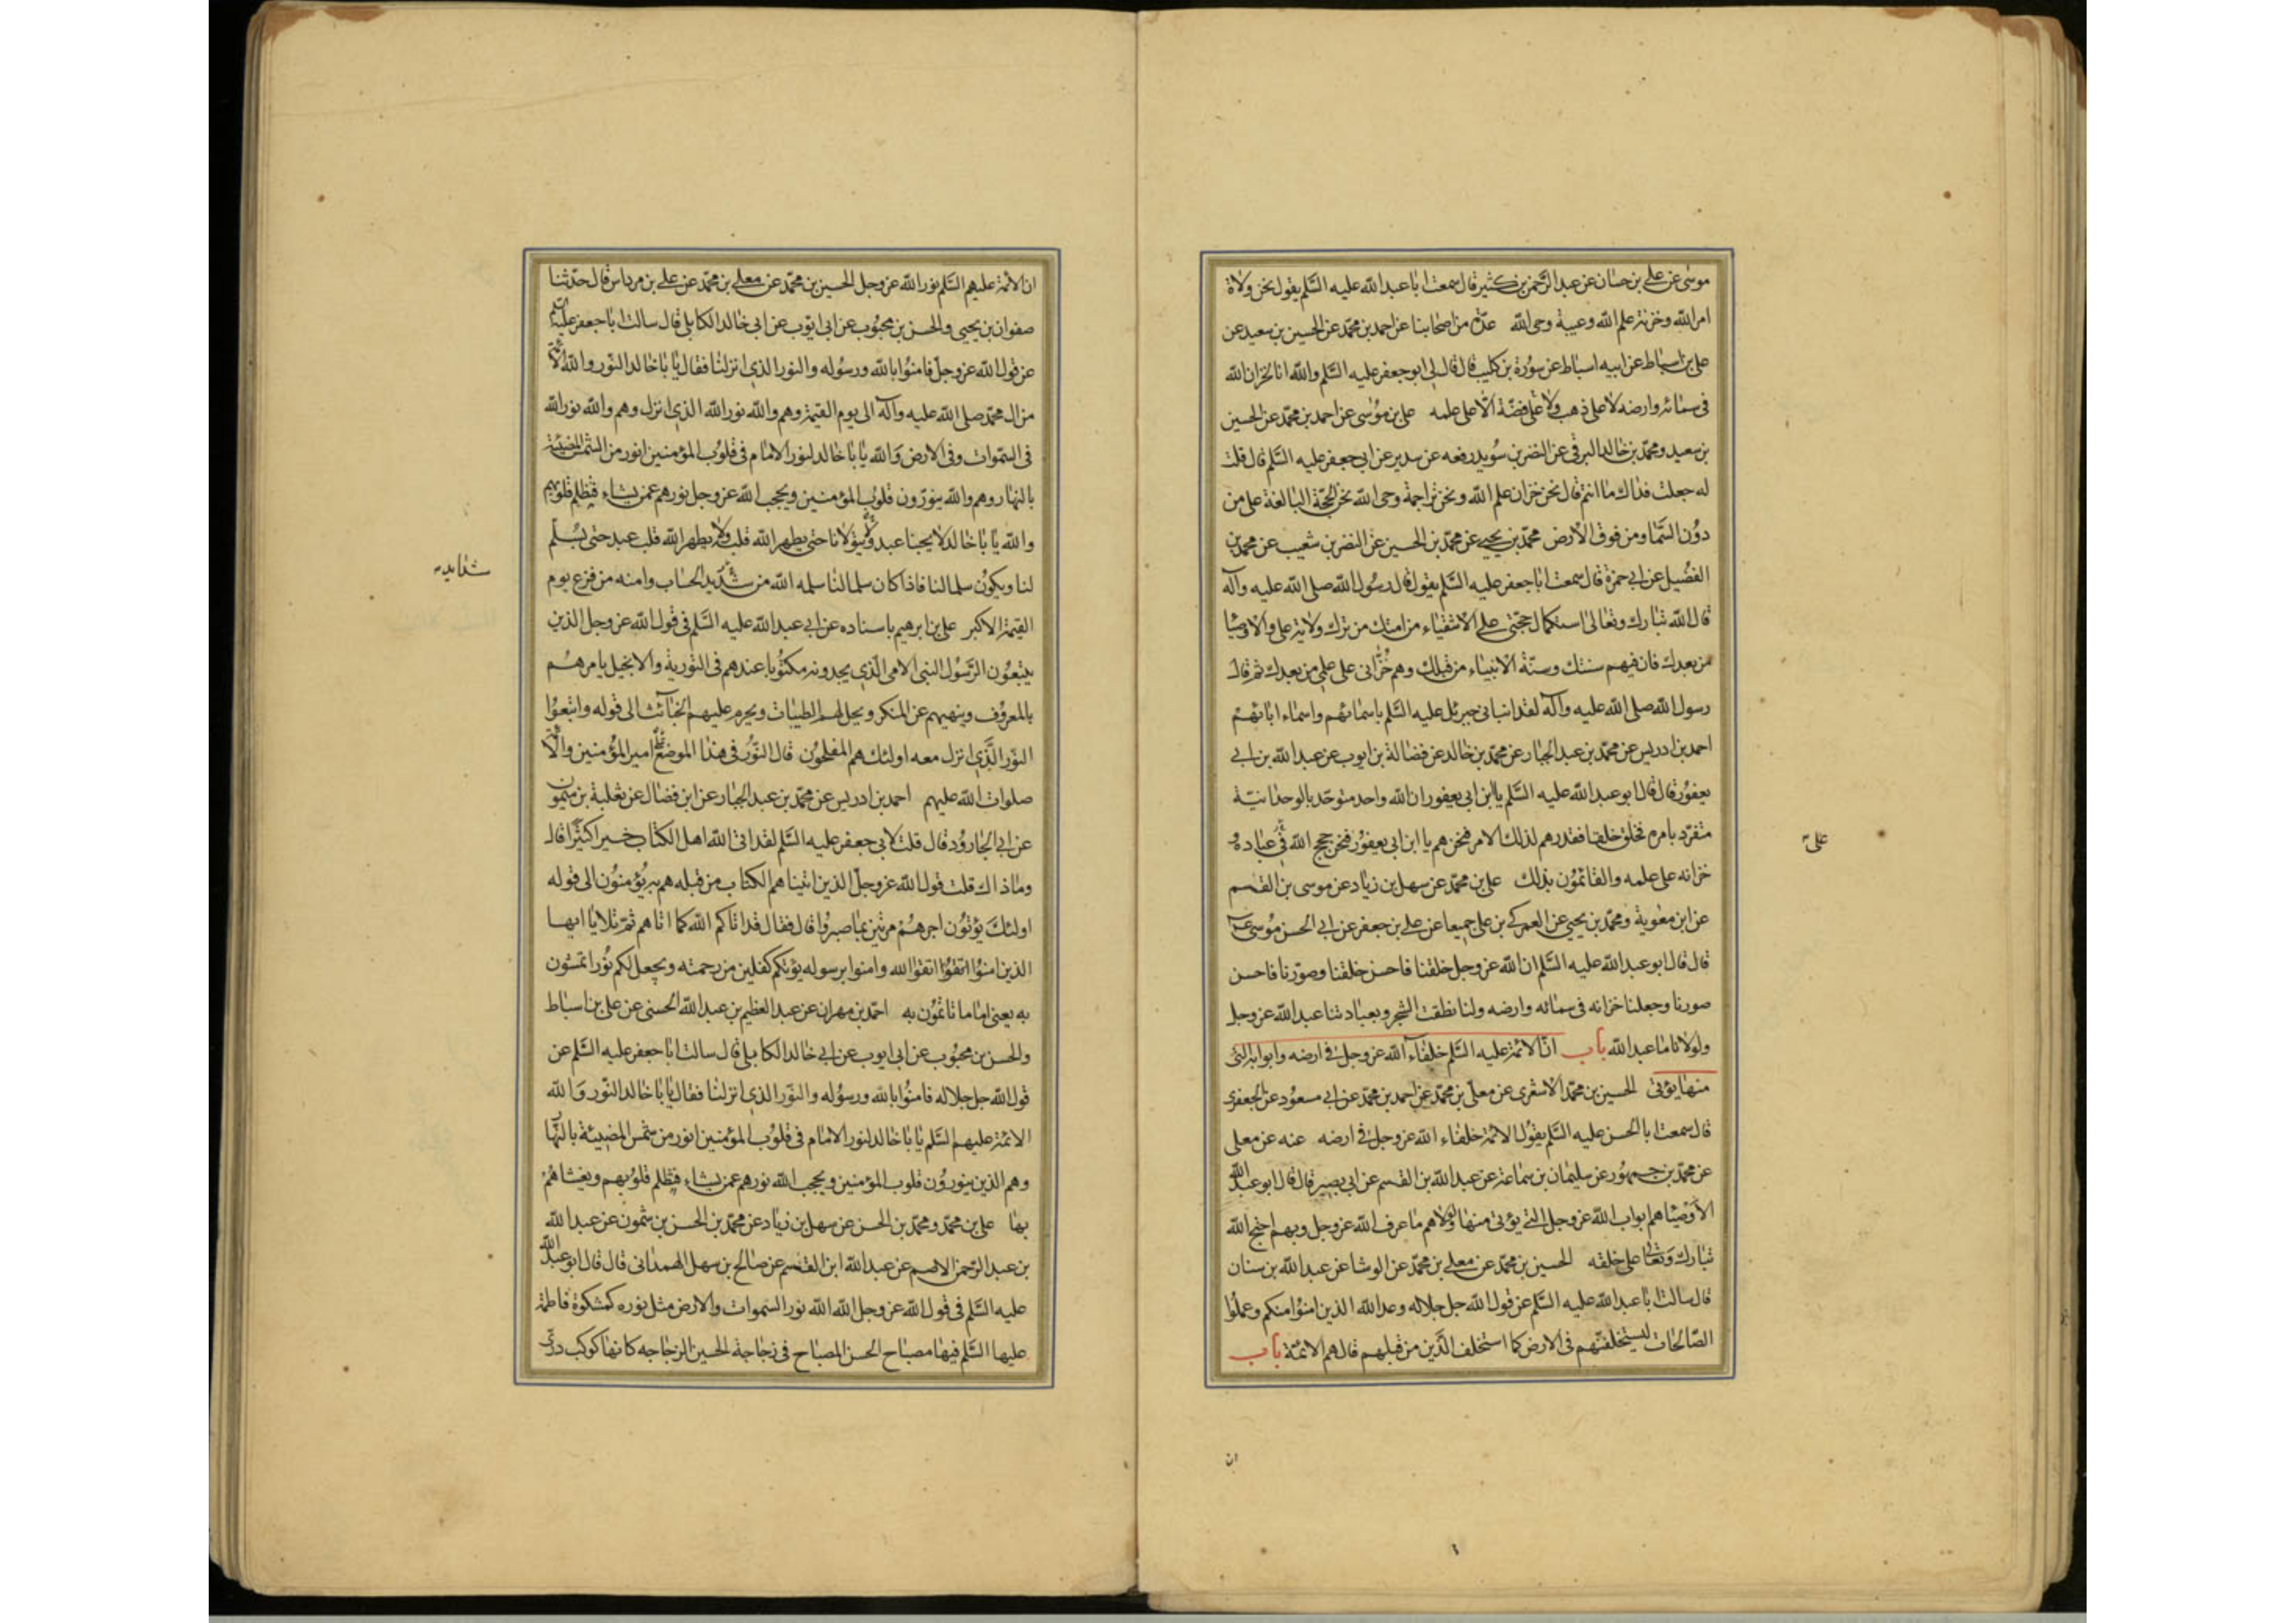 موسى عن علي بن حسان عن عبد الرحمن بن كثير قال سمعت ابا عبد الله عليه السلم يقول نحن ولاة
امر الله وخزنة علم الله وعيبة وحى الله عدة من اصحابنا عن احمد بن محمد عن الحسين بن سعيد عن
على بن اسباط عن ابيه اسباط عن سورة بن كليب قال قال لى ابو جعفر عليه السلم والله انا لخزان الله
فى سمائه وارضه لا على ذهب ولا على فضة الا على علمه على بن موسى عن احمد بن محمد عن الحسين
بن سعيد ومحمد بن خالد البرقى عن النضر بن سويد رفعه عن سدير عن ابى جعفر عليه السلم قال قلت
له جعلت فداك ما انتم قال نحن خزان علم الله ونحن تراجمة وحى الله نحن الحجة البالغة على من
دون السما ومن فوق الارض محمد بن يحيى عن محمد بن الحسين عن النضر بن شعيب عن محمد بن
الفضيل عن ابى حمزة قال سمعت ابا جعفر عليه السلم يقول قال رسول الله صلى الله عليه وآله
قال الله تبارك وتعالى استكمال حجتى على الاشقياء من امتك من ترك ولاية على والاوصيا
من بعدك فان فيهم سنتك وسنة الانبياء من قبلك وهم خزانى على علمى من بعدك ثم قال
رسول الله صلى الله عليه وآله لقد انبانى جبرئل عليه السلم باسمائهم واسماء ابائهم
احمد بن ادريس عن محمد بن عبد الجبار عن محمد بن خالد عن فضالة بن ايوب عن عبد الله بن ابى
يعفور قال قال ابو عبد الله عليه السلم يا ابن ابى يعفور ان الله واحد متوحد بالوحدانية
متفرد بامره فخلق خلقا فقدرهم لذلك الامر فنحن هم يا ابن ابى يعفور فنحن حجج الله فى عباده و
خزانه على علمه والقائمون بذلك على بن محمد عن سهل بن زياد عن موسى بن القسم
عن ابن معوية ومحمد بن يحيى عن العمركى بن على جميعا عن على بن جعفر عن ابى الحسن موسى
قال قال ابو عبد الله عليه السلم ان الله عز وجل خلقنا فاحسن خلقنا وصورنا فاحسن
صورنا وجعلنا خزانه فى سمائه وارضه ولنا نطقت الشجر وبعبادتنا عبد الله عز وجل
ولولانا ما عبد الله باب ان الائمة عليه السلم خلفاء الله عز وجل فى ارضه وابوابه التى
منها يؤتى الحسين بن محمد الاشعرى عن معلى بن محمد عن احمد بن محمد عن ابى مسعود عن الجعفرى
قال سمعت ابا الحسن عليه السلم يقول الائمة خلفاء الله عز وجل فى ارضه عنه عن معلى
عن محمد بن جمهور عن سليمان بن سماعة عن عبد الله بن القسم عن ابى بصير قال قال ابو عبد الله
الاوصياهم ابواب الله عز وجل التى يؤتى منها ولولاهم ما عرف الله عز وجل وبهم احتج الله
تبارك وتعالى على خلقه الحسين بن محمد عن معلى بن محمد عن الوشا عن عبد الله بن سنان
قال سالت ابا عبد الله عليه السلم عن قول الله جل جلاله وعد الله الذين امنوا منكم وعملوا
الصالحات ليستخلفنهم فى الارض كما استخلف الذين من قبلهم قال هم الائمة باب
ان
ان الائمة عليهم السلم نور الله عز وجل الحسين بن محمد عن معلى بن محمد عن على بن مرداس قال حدثنا
صفوان بن يحيى والحسن بن محبوب عن ابى ايوب عن ابى خالد الكابلى قال سالت ابا جعفر عليه السلم
عن قول الله عز وجل فامنوا بالله ورسوله والنور الذى انزلنا فقال يا با خالد النور والله الائمة
من ال محمد صلى الله عليه وآله الى يوم القيمة وهم والله نور الله الذى انزل وهم والله نور الله
فى السموات وفى الارض والله يا با خالد لنور الامام فى قلوب المؤمنين انور من الشمس المضيئة
بالنهار وهم والله ينورون قلوب المؤمنين ويحجب الله عز وجل نورهم عمن يشاء فتظلم قلوبهم
والله يا با خالد لا يحبنا عبد ويتولانا حتى يطهر الله قلبه ولا يطهر الله قلب عبد حتى يسلم
لنا ويكون سلما لنا فاذا كان سلما لنا سلمه الله من شديد الحساب وامنه من فزع يوم
القيمة الاكبر على بن ابرهيم باسناده عن ابى عبد الله عليه السلم فى قول الله عز وجل الذين
يتبعون الرسول النبى الامى الذى يجدونه مكتوبا عندهم فى التورية والانجيل يامرهم
بالمعروف وينهيهم عن المنكر ويحل لهم الطيبات ويحرم عليهم الخبائث الى قوله واتبعوا
النور الذى انزل معه اولئك هم المفلحون قال النور فى هذا الموضع امير المؤمنين والائمة
صلوات الله عليهم احمد بن ادريس عن محمد بن عبد الجبار عن ابن فضال عن ثعلبة بن ميمون
عن ابى الجارود قال قلت لابى جعفر عليه السلم لقد اتى الله اهل الكتاب خيرا كثيرا قال
وما ذاك قلت قول الله عز وجل الذين اتيناهم الكتاب من قبله هم به يؤمنون الى قوله
اولئك يؤتون اجرهم مرتين بما صبروا قال فقال قد اتاكم الله كما اتاهم ثم تلا يا ايها
الذين امنوا اتقوا اتقوا الله وامنوا برسوله يؤتكم كفلين من رحمته ويجعل لكم نورا تمشون
به يعنى اماما تاتمون به احمد بن مهران عن عبد العظيم بن عبد الله الحسنى عن على بن اسباط
والحسن بن محبوب عن ابى ايوب عن ابى خالد الكابلى قال سالت ابا جعفر عليه السلم عن
قول الله جل جلاله فامنوا بالله ورسوله والنور الذى انزلنا فقال يا با خالد النور والله
الائمة عليهم السلم يا با خالد لنور الامام فى قلوب المؤمنين انور من شمس المضيئة بالنهار
وهم الذين ينورون قلوب المؤمنين ويحجب الله نورهم عمن يشاء فتظلم قلوبهم ويغشاهم
بها على بن محمد ومحمد بن الحسن عن سهل بن زياد عن محمد بن الحسن بن شمون عن عبد الله
بن عبد الرحمن الاصم عن عبد الله ابن القسم عن صالح بن سهل الهمدانى قال قال ابو عبد الله
عليه السلم فى قول الله عز وجل الله الله نور السموات والارض مثل نوره كمشكوة فاطمة
عليها السلم فيها مصباح الحسن المصباح فى زجاجة الحسين الزجاجه كانها كوكب درى